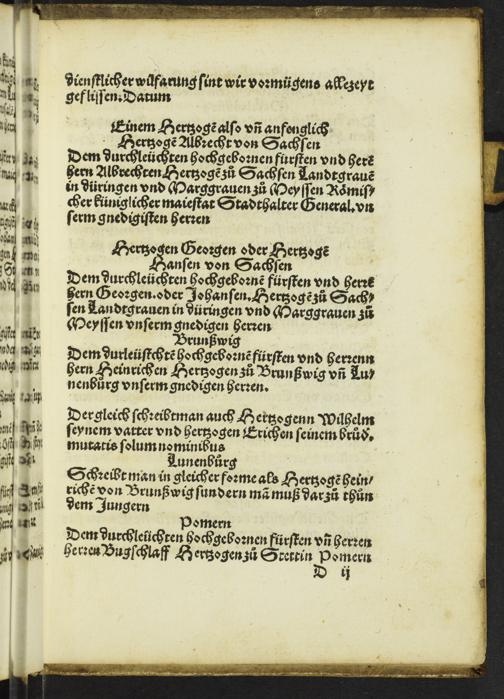 dienstlicher wilfarung sint wir vormügens allezeyt
geflissen. Datum
Einem Hertzogē also vñ anfenglich
Hertzogē Albrecht von Sachsen
Dem durchleüchten hochgebornen fürsten vnd herē
hern Albrechten Hertzogē zů Sachsen Landtgrauē
in düringen vnd Marggrauen zů Meyssen Römis⸗
cher küniglicher maiestat Stadthalter General. vn
serm gnedigisten herren
Hertzogen Georgen oder Hertzogē
Hansen von Sachsen
Dem durchleüchten hochgebornē fürsten vnd herrē
hern Georgen. oder Johansen. Hertzogē zů Sach⸗
sen Landtgrauen in düringen vnd Marggrauen zů
Meyssen vnserm gnedigen herren
Brunßwig
Dem durleüstchtē hochgebornē fürsten vnd herrenn
hern Heinrichen Hertzogen zů Brunßwig vñ Lu⸗
nenbürg vnserm gnedigen herren.
Der gleich schreibt man auch Hertzogenn Wilhelm
seynem vatter vnd hertzogen Erichen seinem brůd.
mutatis solum nominibus
Lunenbürg
Schreibt man in gleicher forme als Hertzogē hein⸗
richē von Brunßwig sundern mā muß dar zů thůn
dem Jungern
Pomern
Dem durchleüchten hochgebornen fürsten vñ herren
herren Bugschlaff Hertzogen zů Stettin Pomern
D ij